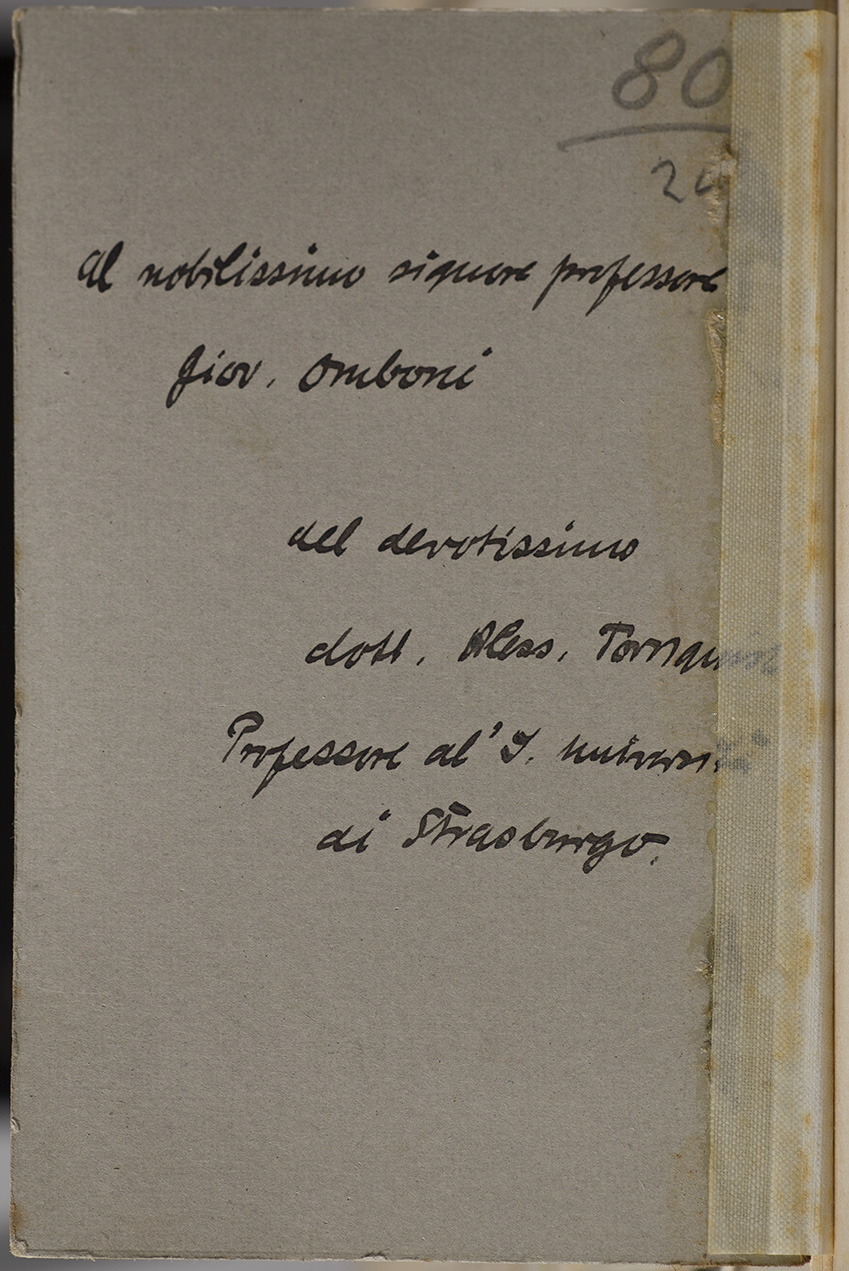 80
al nobilissimo signore professore
Giov. Omboni
del devotissimo
dott. Aless. Tornquist
Professore al' I. Università
di Strasburgo.